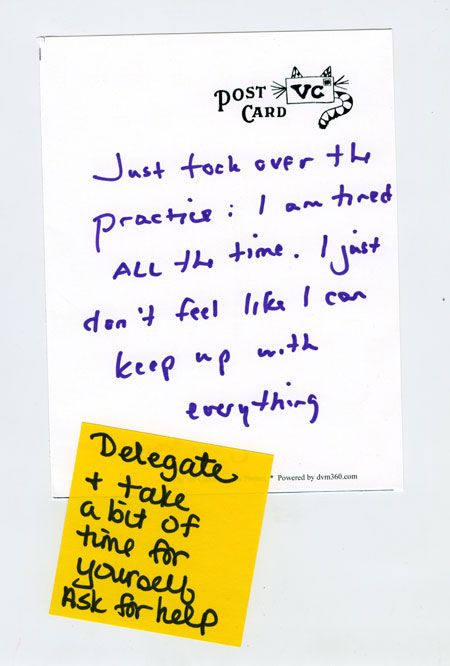 POST CARD VC
Just took over the
practice: I am tired
ALL the time. I just
don't feel like I can
keep up with
everything
• Powered by dvm360.com
Delegate
+ take
a bit of
time for
yourself,
Ask for help